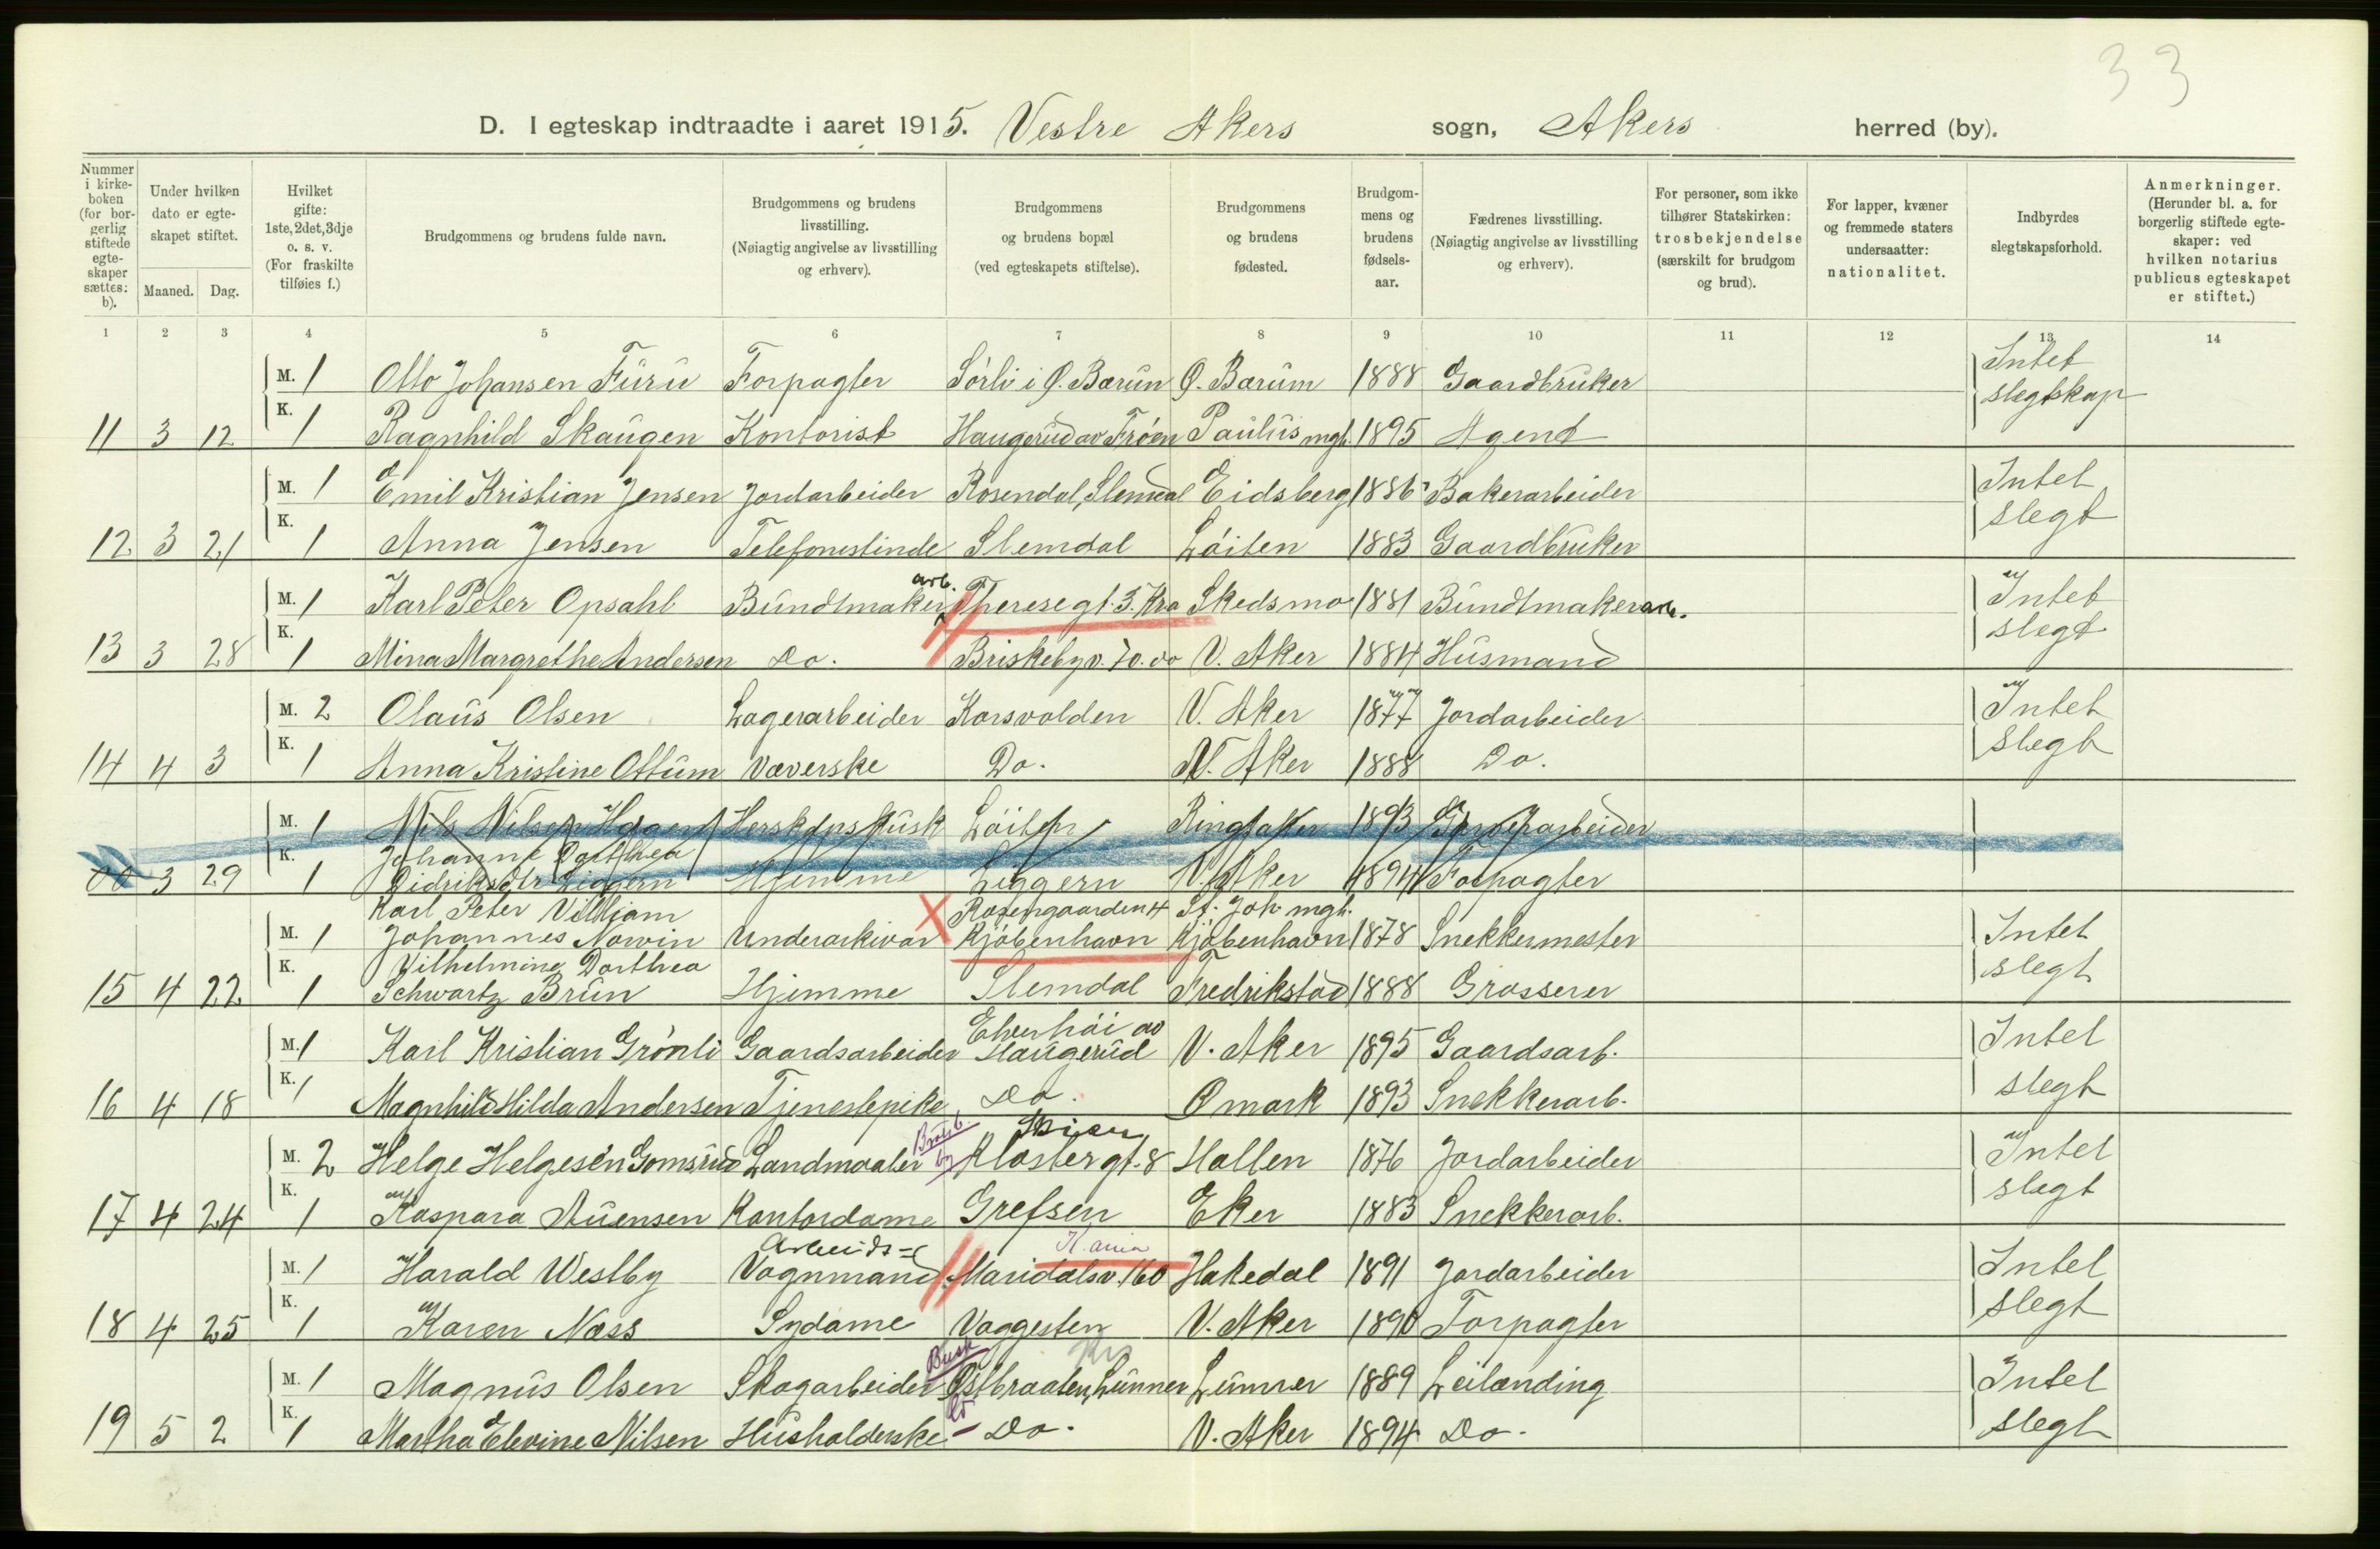 33
D. I egteskap indtraadte i aaret 1915. Vestre Akers sogn, Akers herred (by).
Nummer i kirke-boken (for bor-gerlig stiftede egte-skaper sættes: b).
Under hvilken dato er egte-skapet stiftet.
Maaned. Dag.
Hvilket gifte: 1ste, 2det, 3dje o. s. v. (For fraskilte tilføies f.)
Brudgommens og brudens fulde navn.
Brudgommens og brudens livsstilling. (Nøiagtig angivelse av livsstilling og erhverv).
Brudgommens og brudens bopæl (ved egteskapets stiftelse).
Brudgommens og brudens fødested.
Brudgom-mens og brudens fødsels-aar.
Fædrenes livsstilling. (Nøiagtig angivelse av livsstilling og erhverv).
For personer, som ikke tilhører Statskirken: trosbekjendelse (særskilt for brudgom og brud).
For lapper, kvæner og fremmede staters undersaatter: nationalitet.
Indbyrdes slegtskapsforhold.
Anmerkninger. (Herunder bl. a. for borgerlig stiftede egte-skaper: ved hvilken notarius publicus egteskapet er stiftet.)
1 2 3 4 5 6 7 8 9 10 11 12 13 14
M. 1 Otto Johansen Furu Forpagter Sørli i Ø. Bærum Ø. Bærum 1888 Gaardbruker Intet
11 3 12 K. 1 Ragnhild Skaugen Kontorist Haugerud av Frøen Paulus mgh. 1895 Agent slegtskap
M. 1 Emil Kristian Jensen Jordarbeider Rosendal, Slemdal Eidsberg 1886 Bakerarbeider Intet
12 3 21 K. 1 Anna Jensen Telefonistinde Slemdal Løiten 1883 Gaardbruker slegt
M. 1 Karl Peter Opsahl Bundtmaker arb. Theresegt. 3. Kra Skedsmo 1881 Bundtmakerarb. Intet
13 3 28 K. 1 Mina Margrethe Andersen Do. Briskebyv. 70. do V. Aker 1884 Husmand slegt
M. 2 Olaus Olsen Lagerarbeider Korsvolden V. Aker 1877 Jordarbeider Intet
14 4 3 K. 1 Anna Kristine Ottum Væverske Do. N. Aker 1888 Do. slegt
M. 1 Nils Nilsen Hagen Herskapskusk Løiten Ringsaker 1893
3 29 K. 1 Johanne Dorthea Didriksdtr Liggern Hjemme Liggern V. Aker 1894 Forpagter
M. 1 Karl Peter Villiam Johannes Norvin Underarkivar Rosengaarden 4 Kjøbenhavn St. Joh. mgh. Kjøbenhavn 1878 Snekkermester Intet
15 4 22 K. 1 Vilhelmine Dorthea Schwartz Brun Hjemme Slemdal Fredrikstad 1888 Grosserer slegt
M. 1 Karl Kristian Grønli Gaardsarbeider Elverhøi av Haugerud V. Aker 1895 Gaardsarb. Intet
16 4 18 K. 1 Magnhild Hilda Andersen Tjenestepike Do. Ømark 1893 Snekkerarb. slegt
M. 2 Helge Helgesen Gomsrud Landmaaler Bratsb. Skien Klostergt. 8 Hallen 1876 Jordarbeider Intet
17 4 24 K. 1 Kaspara Auensen Kontordame Grefsen Eker 1883 Snekkerarb. slegt
M. 1 Harald Westby Arbeids- Vognmand Maridalsv. 160 K.ania Hakedal 1891 Jordarbeider Intet
18 4 25 K. 1 Karen Næss Sydame Vaggesten V. Aker 1890 Forpagter slegt
M. 1 Magnus Olsen Skogarbeider Busk Østbraaten, Lunner Lunner 1889 Leilænding Intet
19 5 2 K. 1 Martha Elevine Nilsen Husholderske Do. V. Aker 1894 Do. slegt